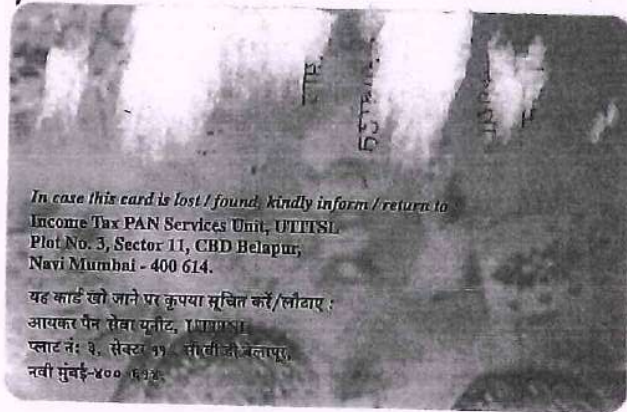 In case this card is lost / found, kindly inform / return to :
Income Tax PAN Services Unit, UTITSL
Plot No. 3, Sector 11, CBD Belapur,
Navi Mumbai - 400 614.
यह कार्ड खो जाने पर कृपया सूचित करें/लौटाए :
आयकर पैन सेवा यूनीट, UTITSL
प्लाट नं: ३, सेक्टर ११, सी.बी.डी.बेलापूर,
नवी मुंबई-४०० ६१४.